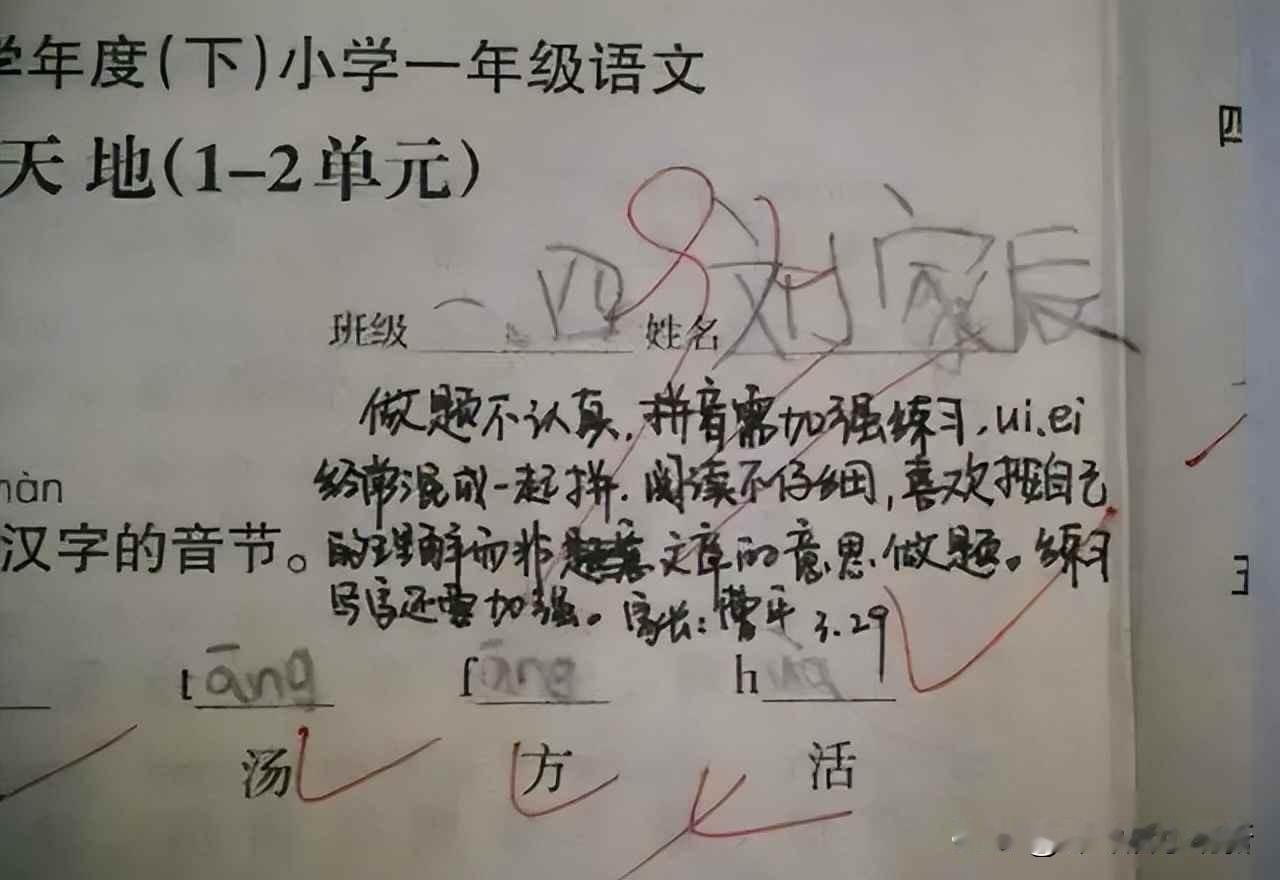 学年度(下)小学一年级语文
天地(1-2单元)
班级 一.四 姓名 刘家辰
做题不认真,拼音需加强练习,ui、ei
经常混成一起拼.阅读不仔细,喜欢按自己
的理解而非 文章的意思做题。练习
写字还需加强。家长:曹平 3.29
汉字的音节。
tāng fāng h
汤 方 活
四